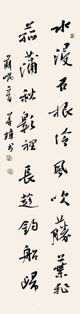 水漫石根冷風吹藤葉稀
菰蒲秋影裡長趁釣船歸